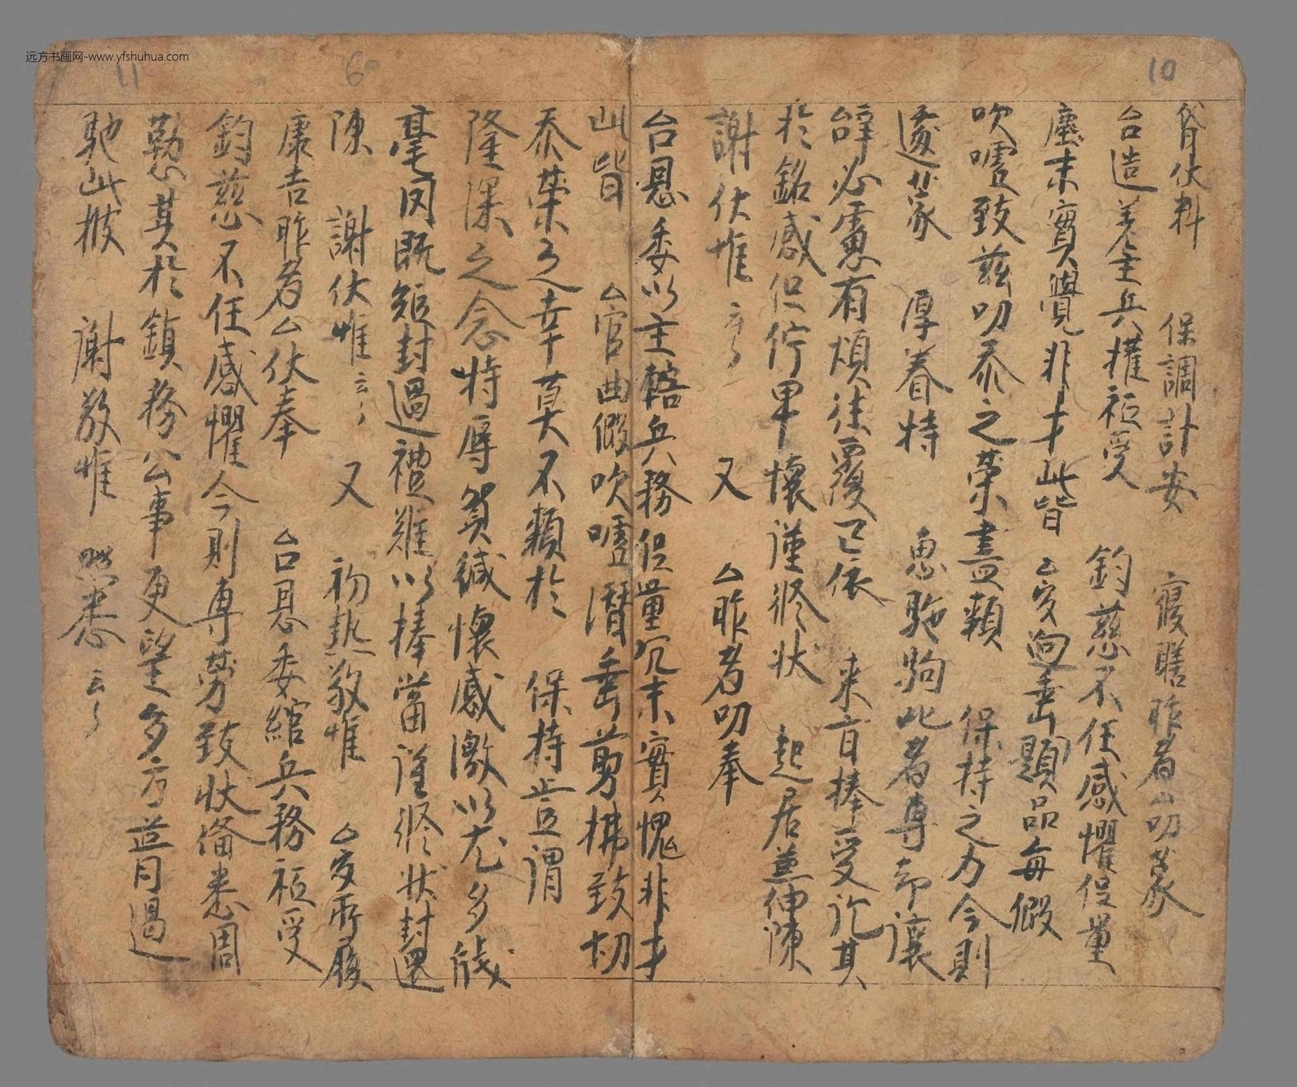 远方书画网-www.yfshuhua.com
10
伏料 保調計安 寢膳昨者厶叨蒙
台造差主兵權祗受 鈞慈不任感懼但量
塵末實覺非才此皆 厶官迥垂顯品每假
吹噓致茲叨忝之榮盡類 保持之力今則
遂蒙 厚眷特 惠駞駒此者專却讓
辭必慮有煩往覆已依 來旨捧受訖其
於銘感但佇卑懷謹修狀 起居兼伸陳
謝伏惟云々 又 厶昨者叨奉
6
11
台恩委以主轄兵務但量冗末實愧非才
此皆 厶官曲假吹噓潛垂剪拂致切
忝榮之幸莫不類於 保持豈謂
隆深之念特辱賀緘懷感激以尤多
毫因既短封過禮難以捧當謹修狀封還
陳 謝伏惟云々 又 初熱敬惟 厶官所履
康吉昨者厶伏奉 台恩委綰兵務祗受
鈞慈不任感懼今則專勞致狀俻悉周
勤其於鎮務公事更望多方並月過
馳此披 謝敬惟 照悉云々